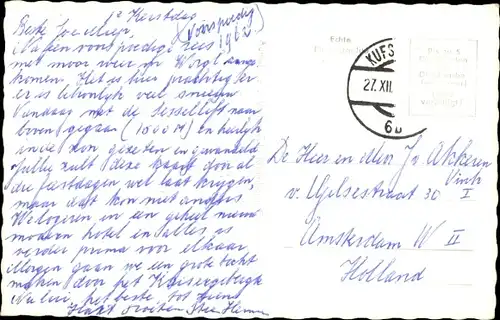 1e Kerstdag
(Voorspoedig
1962)
Beste Jo en Miep.
Na een voorspoedige reis
met mooi weer in Wörgl aange
komen. Het is hier prachtig er
er is letterlijk veel sneeuw
Vandaag met de Sessellift naar
boven gegaan (1000 M) en heerlijk
in de zon gezeten en gewandeld
jullie zult deze kaart door al
de feestdagen wel laat krijgen,
maar dat kon niet anders
We logeren in een geheel nieuw
modern hotel en alles is
verder prima voor elkaar
Morgen gaan we een grote tocht
maken door het Kaisergebergte
Nu lui, het beste tot ziens
Hart. groeten
Echte
KUFS
27. XII.
6b
De Heer en Mevr Jv Akkeren
v. straat 30 I
Amsterdam W II
Holland